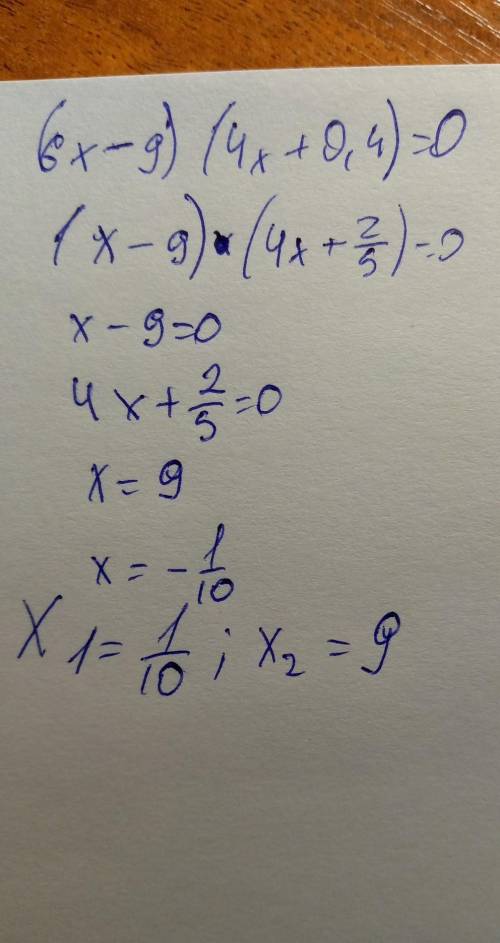 (6x-9)(4x+0,4)=0
(x-9)·(4x+2/5)=0
x-9=0
4x+2/5=0
x=9
x=-1/10
X1=1/10; x2=9